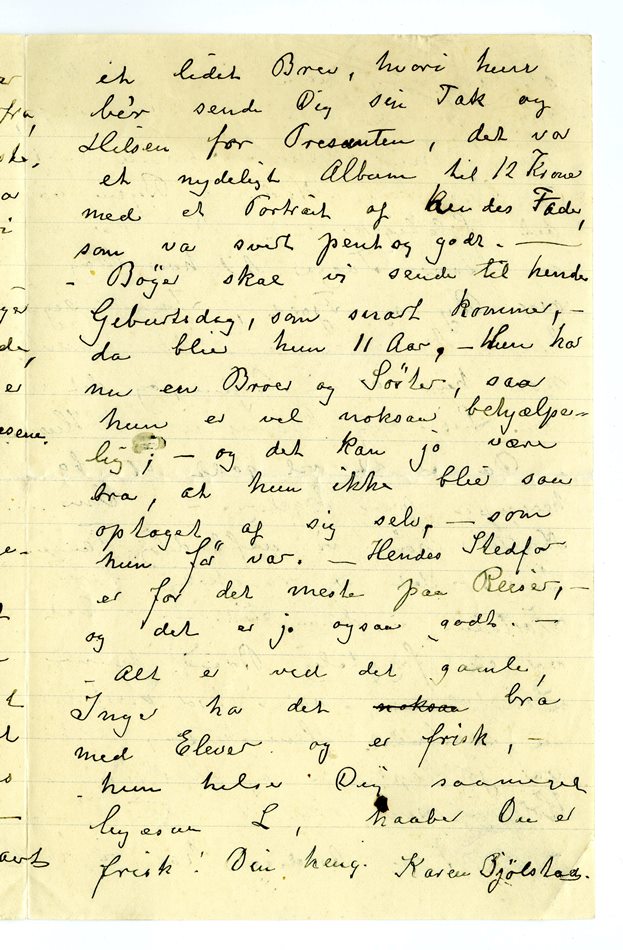 et lidet Brev, hvori hun
ber sende Dig sin Tak og
Hilsen for Presenten, det va
et nydeligt Album til 12 Krone
med et Porträt af hendes Fader,
som va svert pent og godt. —
- Bøger skal vi sende til hende
Geburtsdag, som snart kommer, -
da blir hun 11 Aar, - Hun har
nu en Broer og Söster, saa
hun er vel noksaa behjælpe-
lig; - og det kan jo være
bra, at hun ikke blir saa
optaget af sig selv, - som
hun för var. - Hendes Stedfar
er for det meste paa Reiser, -
og det er jo ogsaa godt. -
- Alt er ved det gamle,
Inger ha det noksaa bra
med Elever og er frisk, -
hun helse Dig saameget
ligesaa L, haaber Du er
frisk! Din heng. Karen Bjölstad.